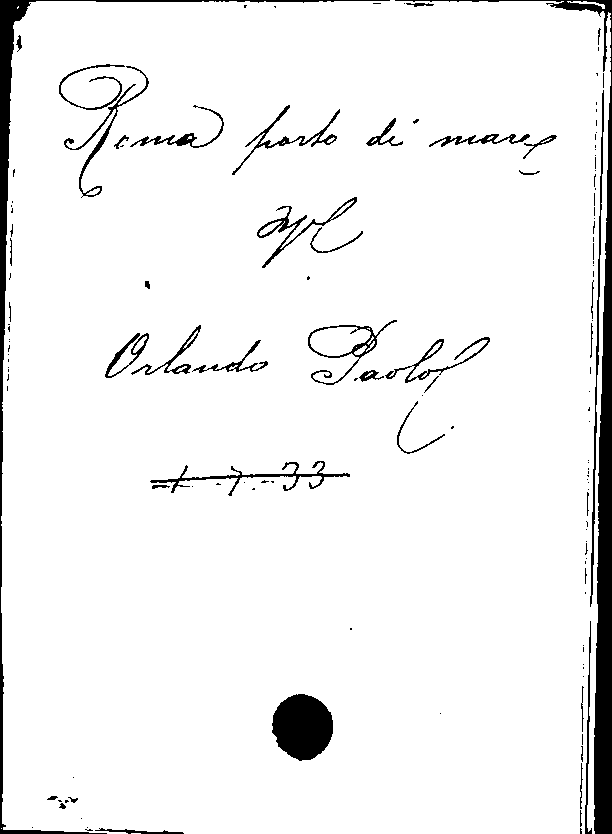 Roma porto di mare
Orlando Paolo
1-7-33